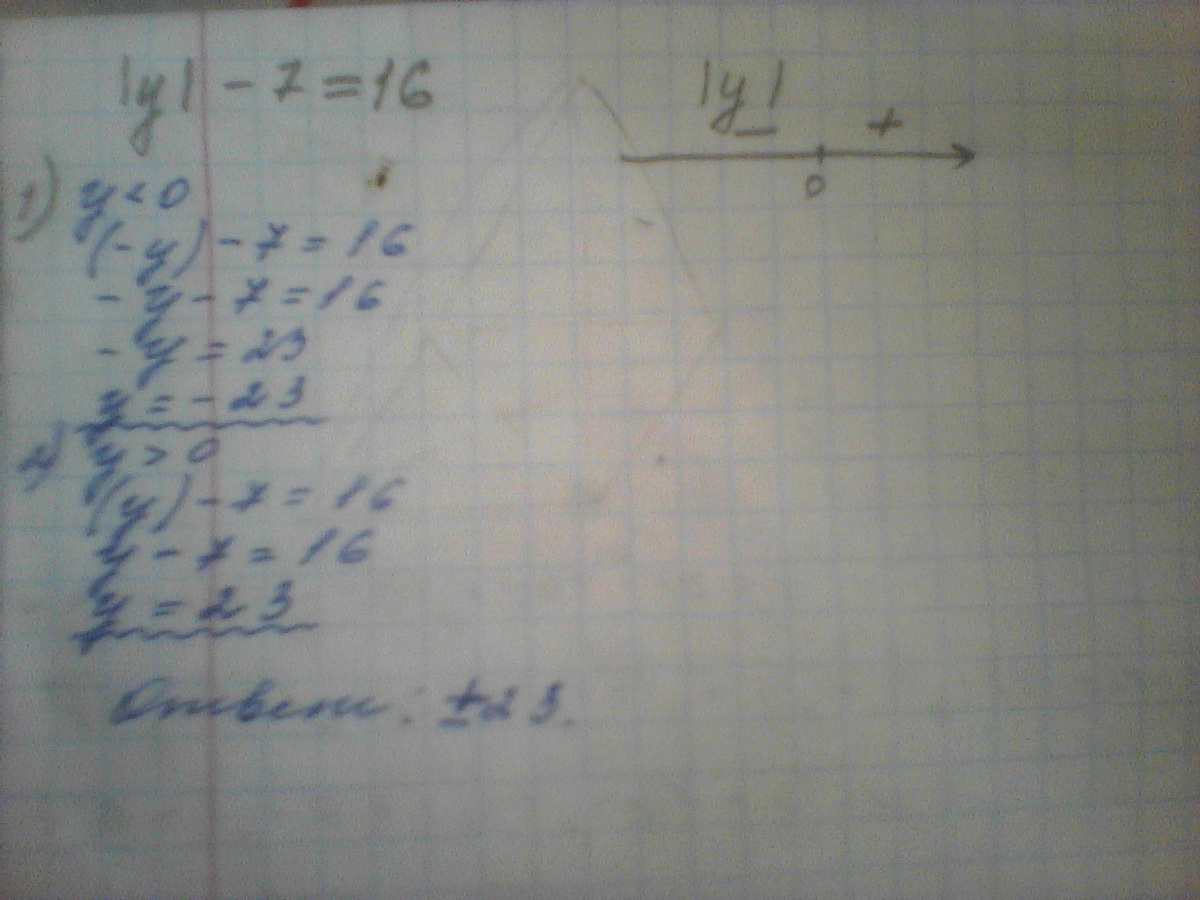 |y| - 7 = 16
|y|
- +
0
1) y < 0
(-y) - 7 = 16
- y - 7 = 16
- y = 23
y = - 23
2) y > 0
(y) - 7 = 16
y - 7 = 16
y = 23
Ответ: ±23.